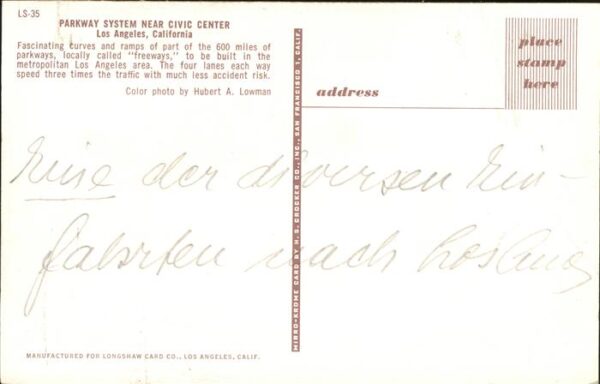 LS-35
PARKWAY SYSTEM NEAR CIVIC CENTER
Los Angeles, California
Fascinating curves and ramps of part of the 600 miles of
parkways, locally called "freeways," to be built in the
metropolitan Los Angeles area. The four lanes each way
speed three times the traffic with much less accident risk.
Color photo by Hubert A. Lowman
place
stamp
here
address
MIRRO-KROME CARD BY H. S. CROCKER CO., INC., SAN FRANCISCO 1, CALIF.
Eine der diversen Ein-
fahrten nach Los Ang
MANUFACTURED FOR LONGSHAW CARD CO., LOS ANGELES, CALIF.